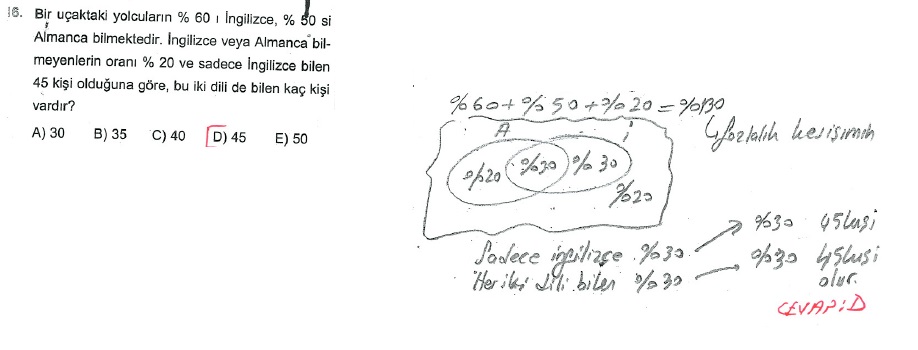 16. Bir uçaktaki yolcuların % 60 ı İngilizce, % 50 si
Almanca bilmektedir. İngilizce veya Almanca bil-
meyenlerin oranı % 20 ve sadece İngilizce bilen
45 kişi olduğuna göre, bu iki dili de bilen kaç kişi
vardır?
A) 30 B) 35 C) 40 D) 45 E) 50
%60+%50+%20=%130
fazlalık kesişimin
A i
%20 %30 %30
%20
Sadece ingilizce %30
Her iki dili bilen %30
%30 45kişi
%30 45kişi
olur.
CEVAP:D